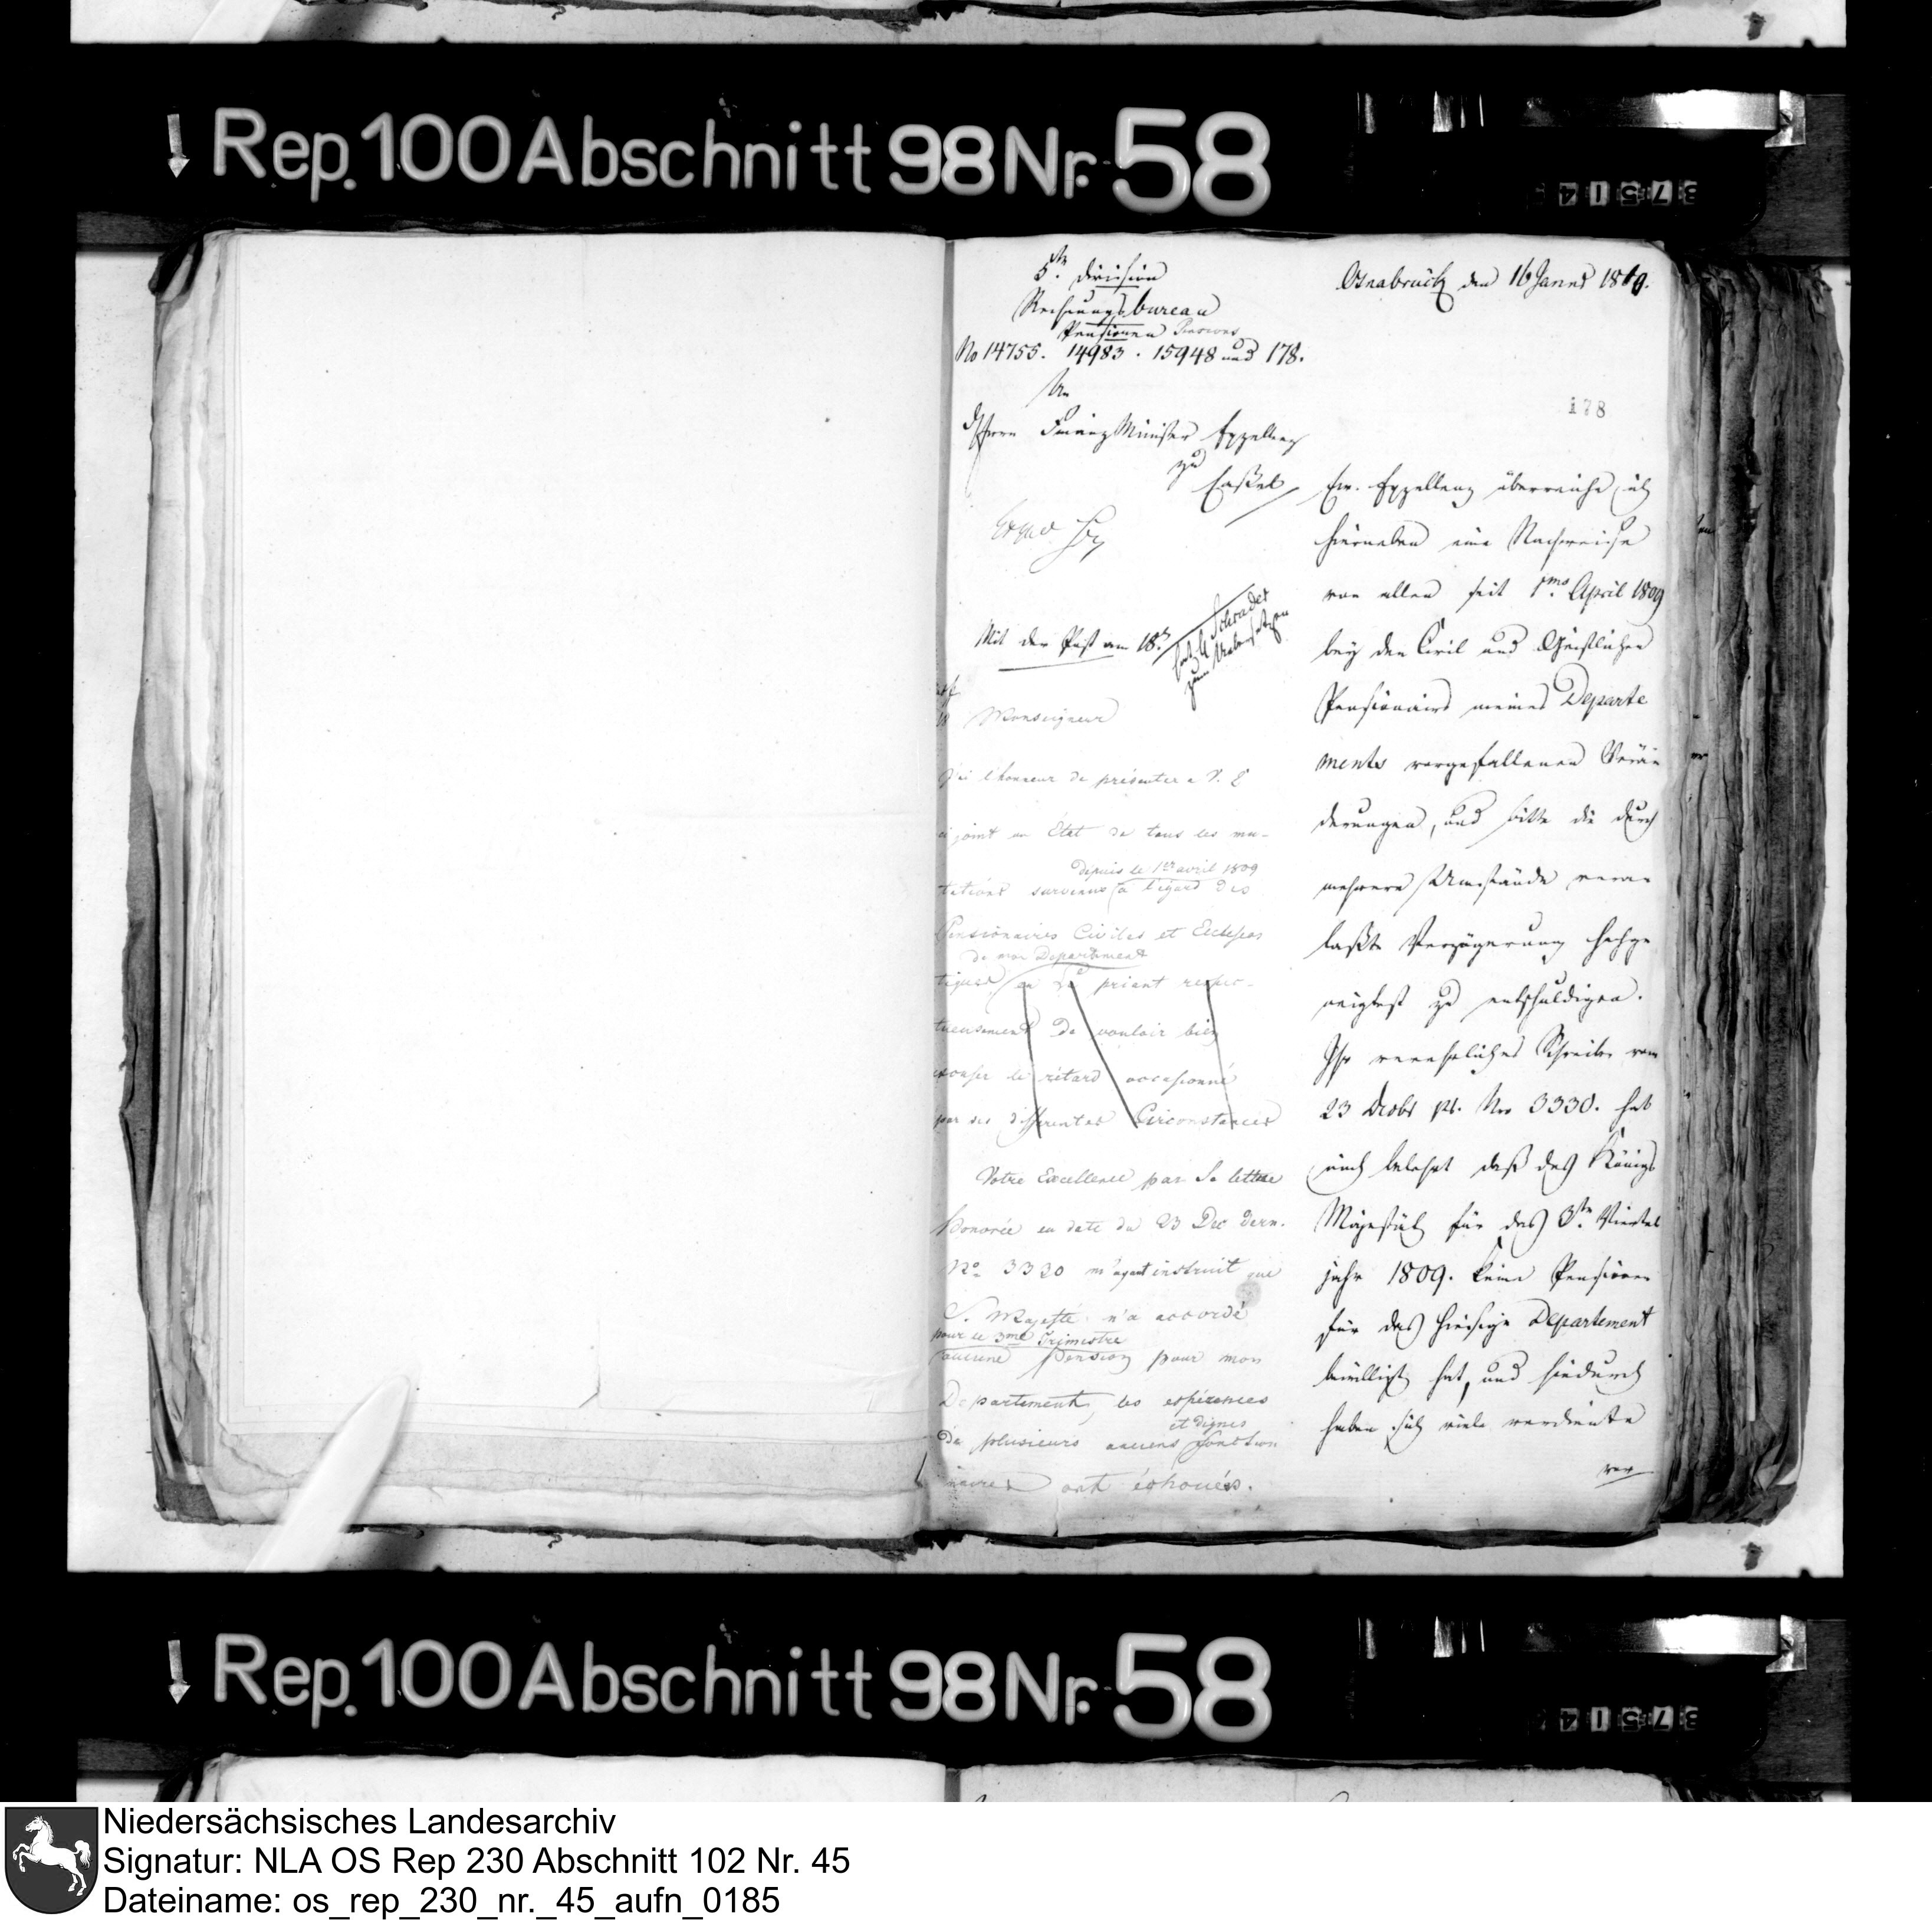 Rep. 100 Abschnitt 98 Nr. 58
37514
5te Division
Rechnungsbureau
Pensionen Pensions
No 14755. 14983. 15948 und 178.
An
Herrn Finanz Minister Excellenz
zu
Cassel
Mit der Post am 18t
Schrader
zum Uebersetzen
Monseigneur
J'ai l'honneur de présenter a V. E
ci joint un Etat de tous les mu-
depuis le 1er avril 1809
tations survenus à l'égard des
Pensionaires Civiles et Ecclesias
de mon Departement
tiques en La priant respec-
tueusement de vouloir bien
excuser le rétard occasionné
par des differentes Circonstances
Votre Excellence par Sa lettre
honorée en date du 23 Dec dern.
No 3330 m'ayant instruit que
S. Majesté n'a accordé
pour le 3me Trimestre
aucune Pension pour mon
Departement, les espérances
et dignes
de plusieurs anciens fonction
naires ont échoués.
Osnabrück den 16 Januar 1810.
178
Ew. Excellenz überreiche ich
hierneben eine Nachweise
von allen seit 1ms April 1809
bey den Civil und Geistlichen
Pensionairs meines Departe
ments vorgefallenen Verän
derungen, und bitte die durch
mehrere Umstände veran
laßte Verzögerung hochge
neigtest zu entschuldigen.
Ihr verehrliches Schreiben vom
23 Decbr pt. Nro 3330. hat
mich belehrt daß des Königs
Majestät für das 3te Viertel
jahr 1809. keine Pensionen
für das hiesige Departement
bewilligt hat, und hiedurch
haben sich viele verdiente
Rep. 100 Abschnitt 98 Nr. 58
37514
Niedersächsisches Landesarchiv
Signatur: NLA OS Rep 230 Abschnitt 102 Nr. 45
Dateiname: os_rep_230_nr._45_aufn_0185